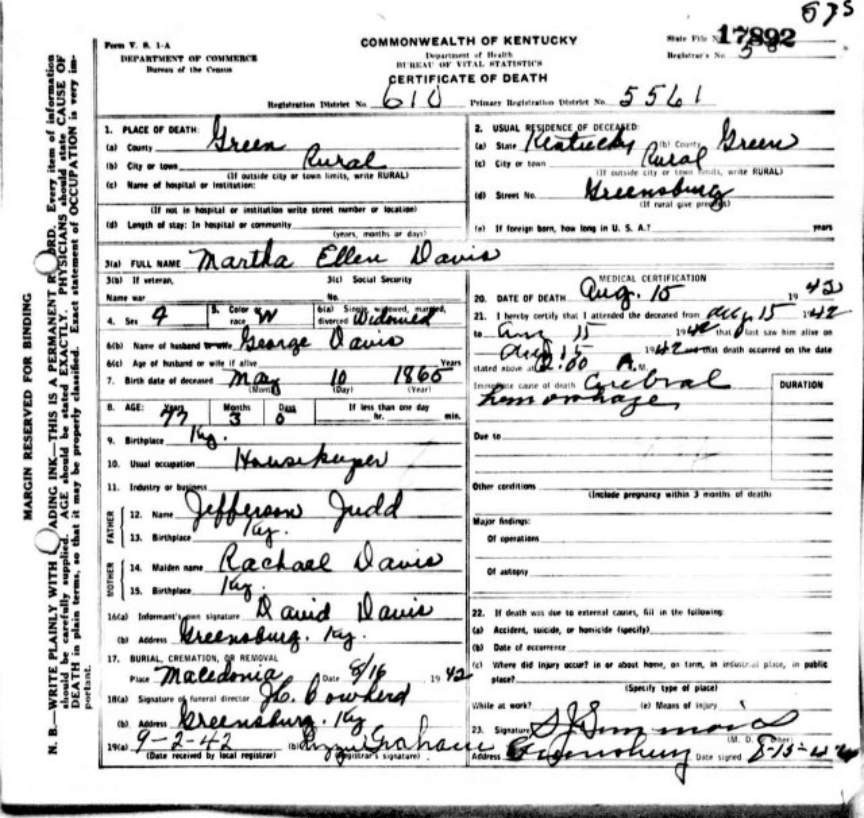 575
Form V. S. 1-A
DEPARTMENT OF COMMERCE
Bureau of the Census
COMMONWEALTH OF KENTUCKY
Department of Health
BUREAU OF VITAL STATISTICS
CERTIFICATE OF DEATH
State File No. 17892
Registrar's No. 5
Registration District No. 610 Primary Registration District No. 5561
MARGIN RESERVED FOR BINDING
N. B.—WRITE PLAINLY WITH UNFADING INK—THIS IS A PERMANENT RECORD. Every item of information
should be carefully supplied. AGE should be stated EXACTLY. PHYSICIANS should state CAUSE OF
DEATH in plain terms, so that it may be properly classified. Exact statement of OCCUPATION is very im-
portant.
1. PLACE OF DEATH:
(a) County Green
(b) City or town Rural
(If outside city or town limits, write RURAL)
(c) Name of hospital or institution:
(If not in hospital or institution write street number or location)
(d) Length of stay: In hospital or community
(years, months or days)
2. USUAL RESIDENCE OF DECEASED:
(a) State Kentucky (b) County Green
(c) City or town Rural
(If outside city or town limits, write RURAL)
(d) Street No. Greensburg
(If rural give precinct)
(e) If foreign born, how long in U. S. A.? years
3(a) FULL NAME Martha Ellen Davis
3(b) If veteran,
Name war
3(c) Social Security
No.
4. Sex 5. Color or race W 6(a) Single, widowed, married, divorced Widowed
6(b) Name of husband or wife George Davis
6(c) Age of husband or wife if alive Years
7. Birth date of deceased May 10 1865
(Month) (Day) (Year)
8. AGE: Years Months Days If less than one day
77 3 hr. min.
9. Birthplace Ky.
10. Usual occupation Housekeeper
11. Industry or business
FATHER
12. Name Jefferson Judd
13. Birthplace Ky.
MOTHER
14. Maiden name Rachael Davis
15. Birthplace Ky.
16(a) Informant's own signature David Davis
(b) Address Greensburg. Ky.
17. BURIAL, CREMATION, OR REMOVAL
Place Macedonia Date 8/16 1942
18(a) Signature of funeral director Cowherd
(b) Address Greensburg. Ky
19(a) 9-2-42 (b) Graham
(Date received by local registrar) (Registrar's signature)
MEDICAL CERTIFICATION
20. DATE OF DEATH Aug. 15 1942
21. I hereby certify that I attended the deceased from Aug 15 1942
to Aug 15 1942 that I last saw him alive on
Aug 15 1942 and that death occurred on the date
stated above at 2:00 A. M.
Immediate cause of death Cerebral
hemorrhage
DURATION
Due to
Other conditions
(Include pregnancy within 3 months of death)
Major findings:
Of operations
Of autopsy
22. If death was due to external causes, fill in the following:
(a) Accident, suicide, or homicide (specify)
(b) Date of occurrence
(c) Where did injury occur? in or about home, on farm, in industrial place, in public
place?
(Specify type of place)
While at work? (e) Means of injury
23. Signature S J Simmons
(M. D. or other)
Address Greensburg Date signed 8-15-42